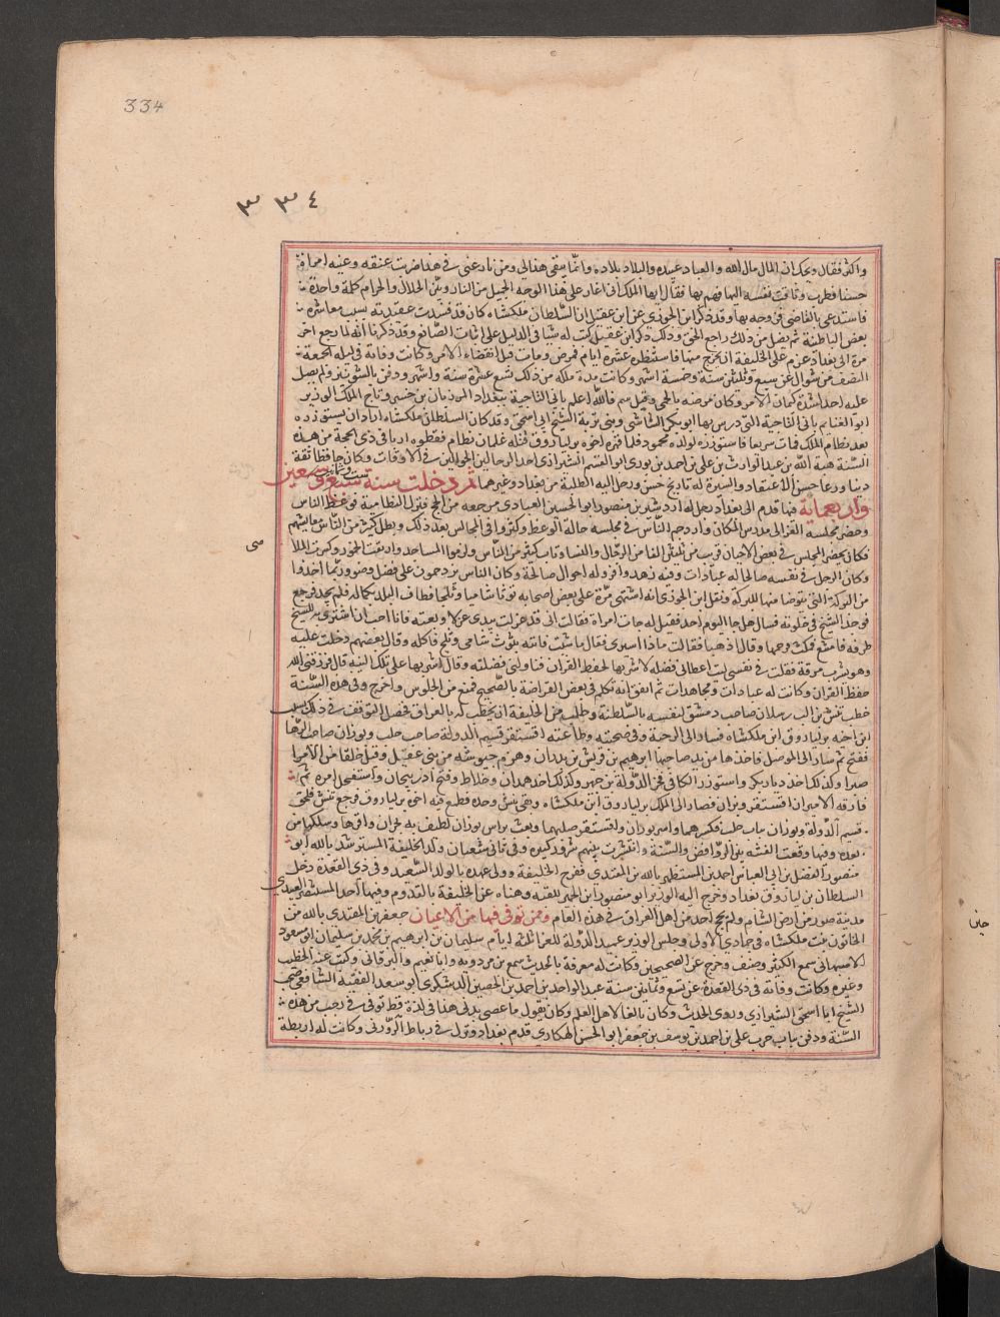 334
٣٣٤
واكثر فقال ويحك ان المال مال الله والعباد عبيده والبلاد بلاده وانما يبقى هذا لي ومن نازعني في هذا ضربت عنقه وغنته امراة
حسنا فطرب وتاقت نفسه اليها فهم بها فقال ايها الملك اني اغار على هذا الوجه الجميل من النار وبين الحلال والحرام كلمة واحدة
فاستدعى بالقاضي فزوجه بها وقد ذكر ابن الجوزي عن ابن عقيل ان السلطان ملكشاه كان قد فسدت عقيدته بسبب معاشرته
بعض الباطنية ثم تنصل من ذلك وراجع الحق وذلك ذكر ابن عقيل كتب له شيا في الدليل على اثبات الصانع وقد ذكرنا انه لما رجع اخر
مرة الى بغداد عزم على الخليفة ان يخرج منها فاستنظره عشرة ايام فمرض ومات قبل انقضاء الامر وكانت وفاته في ليلة الجمعة
النصف من شوال عن سبع وثلثين سنة وخمسة اشهر وكانت مدة ملكه من ذلك تسع عشرة سنة واشهر ودفن بالشونيز ولم يصل
عليه احد لشدة كتمان الامر وكان مرضه بالحمى وقيل سم فالله اعلم باني التاجية ببغداد المرزبان بن خسرو تاج الملك الوزير
ابو الغنايم باني التاجية التي درس بها ابو بكر الشاشي وبنى تربة الشيخ ابي اسحق وقد كان السلطان ملكشاه اراد ان يستوزره
بعد نظام الملك فمات سريعا فاستوزره لولده محمود فلما قهره اخوه بركيارق قتله غلمان نظام فقطعوه اربا في ذي الحجة من هذه
السنة هبة الله بن عبد الوارث بن علي بن احمد بن بوري ابو القسم الشيرازي احد الرحالين الجوالين في الافاق وكان حافظا ثقة
دينا ورعا حسن الاعتقاد والسيرة له تاريخ حسن ورحل اليه الطلبة من بغداد وغيرها ثم دخلت سنة ست وثمانين
واربعماية فيها قدم الى بغداد رجل له اردشير بن منصور ابو الحسين العبادي مرجعه من الحج فنزل النظامية فوعظ الناس
وحضر مجلسه الغزالي مدرس المكان وازدحم الناس في مجلسه حالة الوعظ وكثروا في المجالس بعد ذلك وبطل كثير من الناس معايشهم
فكان يحضر المجلس في بعض الاحيان قريب من ثلثين الفا من الرجال والنساء وتاب كثير من الناس ولزموا المساجد واريقت الخمور وكسرت الملاهي
وكان الرجل في نفسه صالحا له عبادات وفيه زهد وافر وله احوال صالحة وكان الناس يزدحمون على فضل وضوه وربما اخذوا
من البركة التي يتوضا منها للبركة ونقل ابن الجوزي انه اشتهى مرة على بعض اصحابه توتا شاميا وثلجا فطاف البلد بكماله فلم يجد فرجع
فوجد الشيخ في خلوته فسال هل جا اليوم احد فقيل له جات امراة فقالت اني قد غزلت بيدي غزلا وبعته وانا احب ان اشتري به للشيخ
طرفة فامتنع فبكت فرحمها وقال اذهبا فقالت ماذا اشتري فقال ما شئت فاتته بتوت شامي وثلج فاكله وقال بعضهم دخلت عليه
وهو يشرب مرقة فقلت في نفسي ليت اعطاني فضله لاشربها لحفظ القران فناولني فضلته وقال اشربها على تلك النية قال فرزقني الله
حفظ القران وكانت له عبادات ومجاهدات ثم اتفق انه تكلم في بيع القراضة بالصحيح فمنع من الجلوس واخرج وفي هذه السنة
خطب تتش بن الب رسلان صاحب دمشق لنفسه بالسلطنة وطلب من الخليفة ان يخطب له بالعراق فحصل التوقف في ذلك بسبب
ابن اخيه بركيارق ابن ملكشاه فسار الى الرحبة وفي صحبته وطاعته اقسنقر قسيم الدولة صاحب حلب وبوزان صاحب الرها
ففتح ثم سار الى الموصل فاخذها من يد صاحبها ابراهيم بن قريش بن بدران وهزم جيوشه من بني عقيل وقتل خلقا من الامرا
صبرا وكذلك اخذ ديار بكر واستوزر الكافي فخر الدولة بن جهير وكذلك اخذ همدان وخلاط وفتح اذربيجان واستفحل امره ثم
فارقه الاميران اقسنقر وبوزان فصارا الى الملك بركيارق ابن ملكشاه وبقي تتش وحده فطمع فيه اخي بركيارق فرجع تتش فلحق
قسيم الدولة وبوزان بباب حلب فكسرهما واسر بوزان واقسنقر صلبهما وبعث براس بوزان فطيف به بحران والرها وملكها من
بعده وفيها وقعت الفتنة بين الروافض والسنة وانتشرت بينهم شرور كثيرة وفي ثاني شعبان ولد للخليفة المسترشد بالله ابو
منصور الفضل بن ابي العباس احمد بن المستظهر بالله بن المقتدي ففرح الخليفة وولي عهده بالولد السعيد وفي ذي القعدة دخل
السلطان بركيارق بغداد وخرج اليه الوزير ابو منصور ابن جهير للقيه وهناه عن الخليفة بالقدوم وفيها اخذ المستنصر العبيدي
مدينة صور من ارض الشام ولم يحج احد من اهل العراق في هذه العام وممن توفي فيها من الاعيان جعفر بن المقتدي بالله من
الخاتون بنت ملكشاه في جمادى الاولى وجلس الوزير عميد الدولة للعزا ثلثة ايام سليمان بن ابرهيم بن محمد بن سليمان ابو مسعود
الاصبهاني سمع الكثير وصنف وخرج على الصحيحين وكانت له معرفة بالحديث سمع بن مردويه وابا نعيم والبرقاني وكتب عنه الخطيب
وغيره وكانت وفاته في ذي القعدة عن تسع وثمانين سنة عبد الواحد بن احمد بن الحصين الدشكري ابو سعد الفقيه الشافعي صحب
الشيخ ابا اسحق الشيرازي وروى الحديث وكان بالغا لاهل العلم وكان يقول ما عصى بدني هذا في لذة قط توفي في رجب من هذه
السنة ودفن بباب حرب علي بن احمد بن يوسف بن جعفر ابو الحسن الهكاري قدم بغداد ونزل في رباط الزوزني وكانت له اربطة